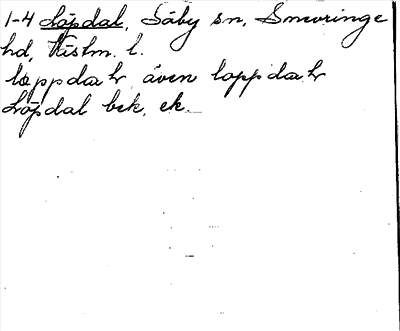 1-4 Löpdal, Säby sn, Snevringe
hd, Västm. l.
loppdaɫr även loppdaɫr
Löpdal bek. ek.